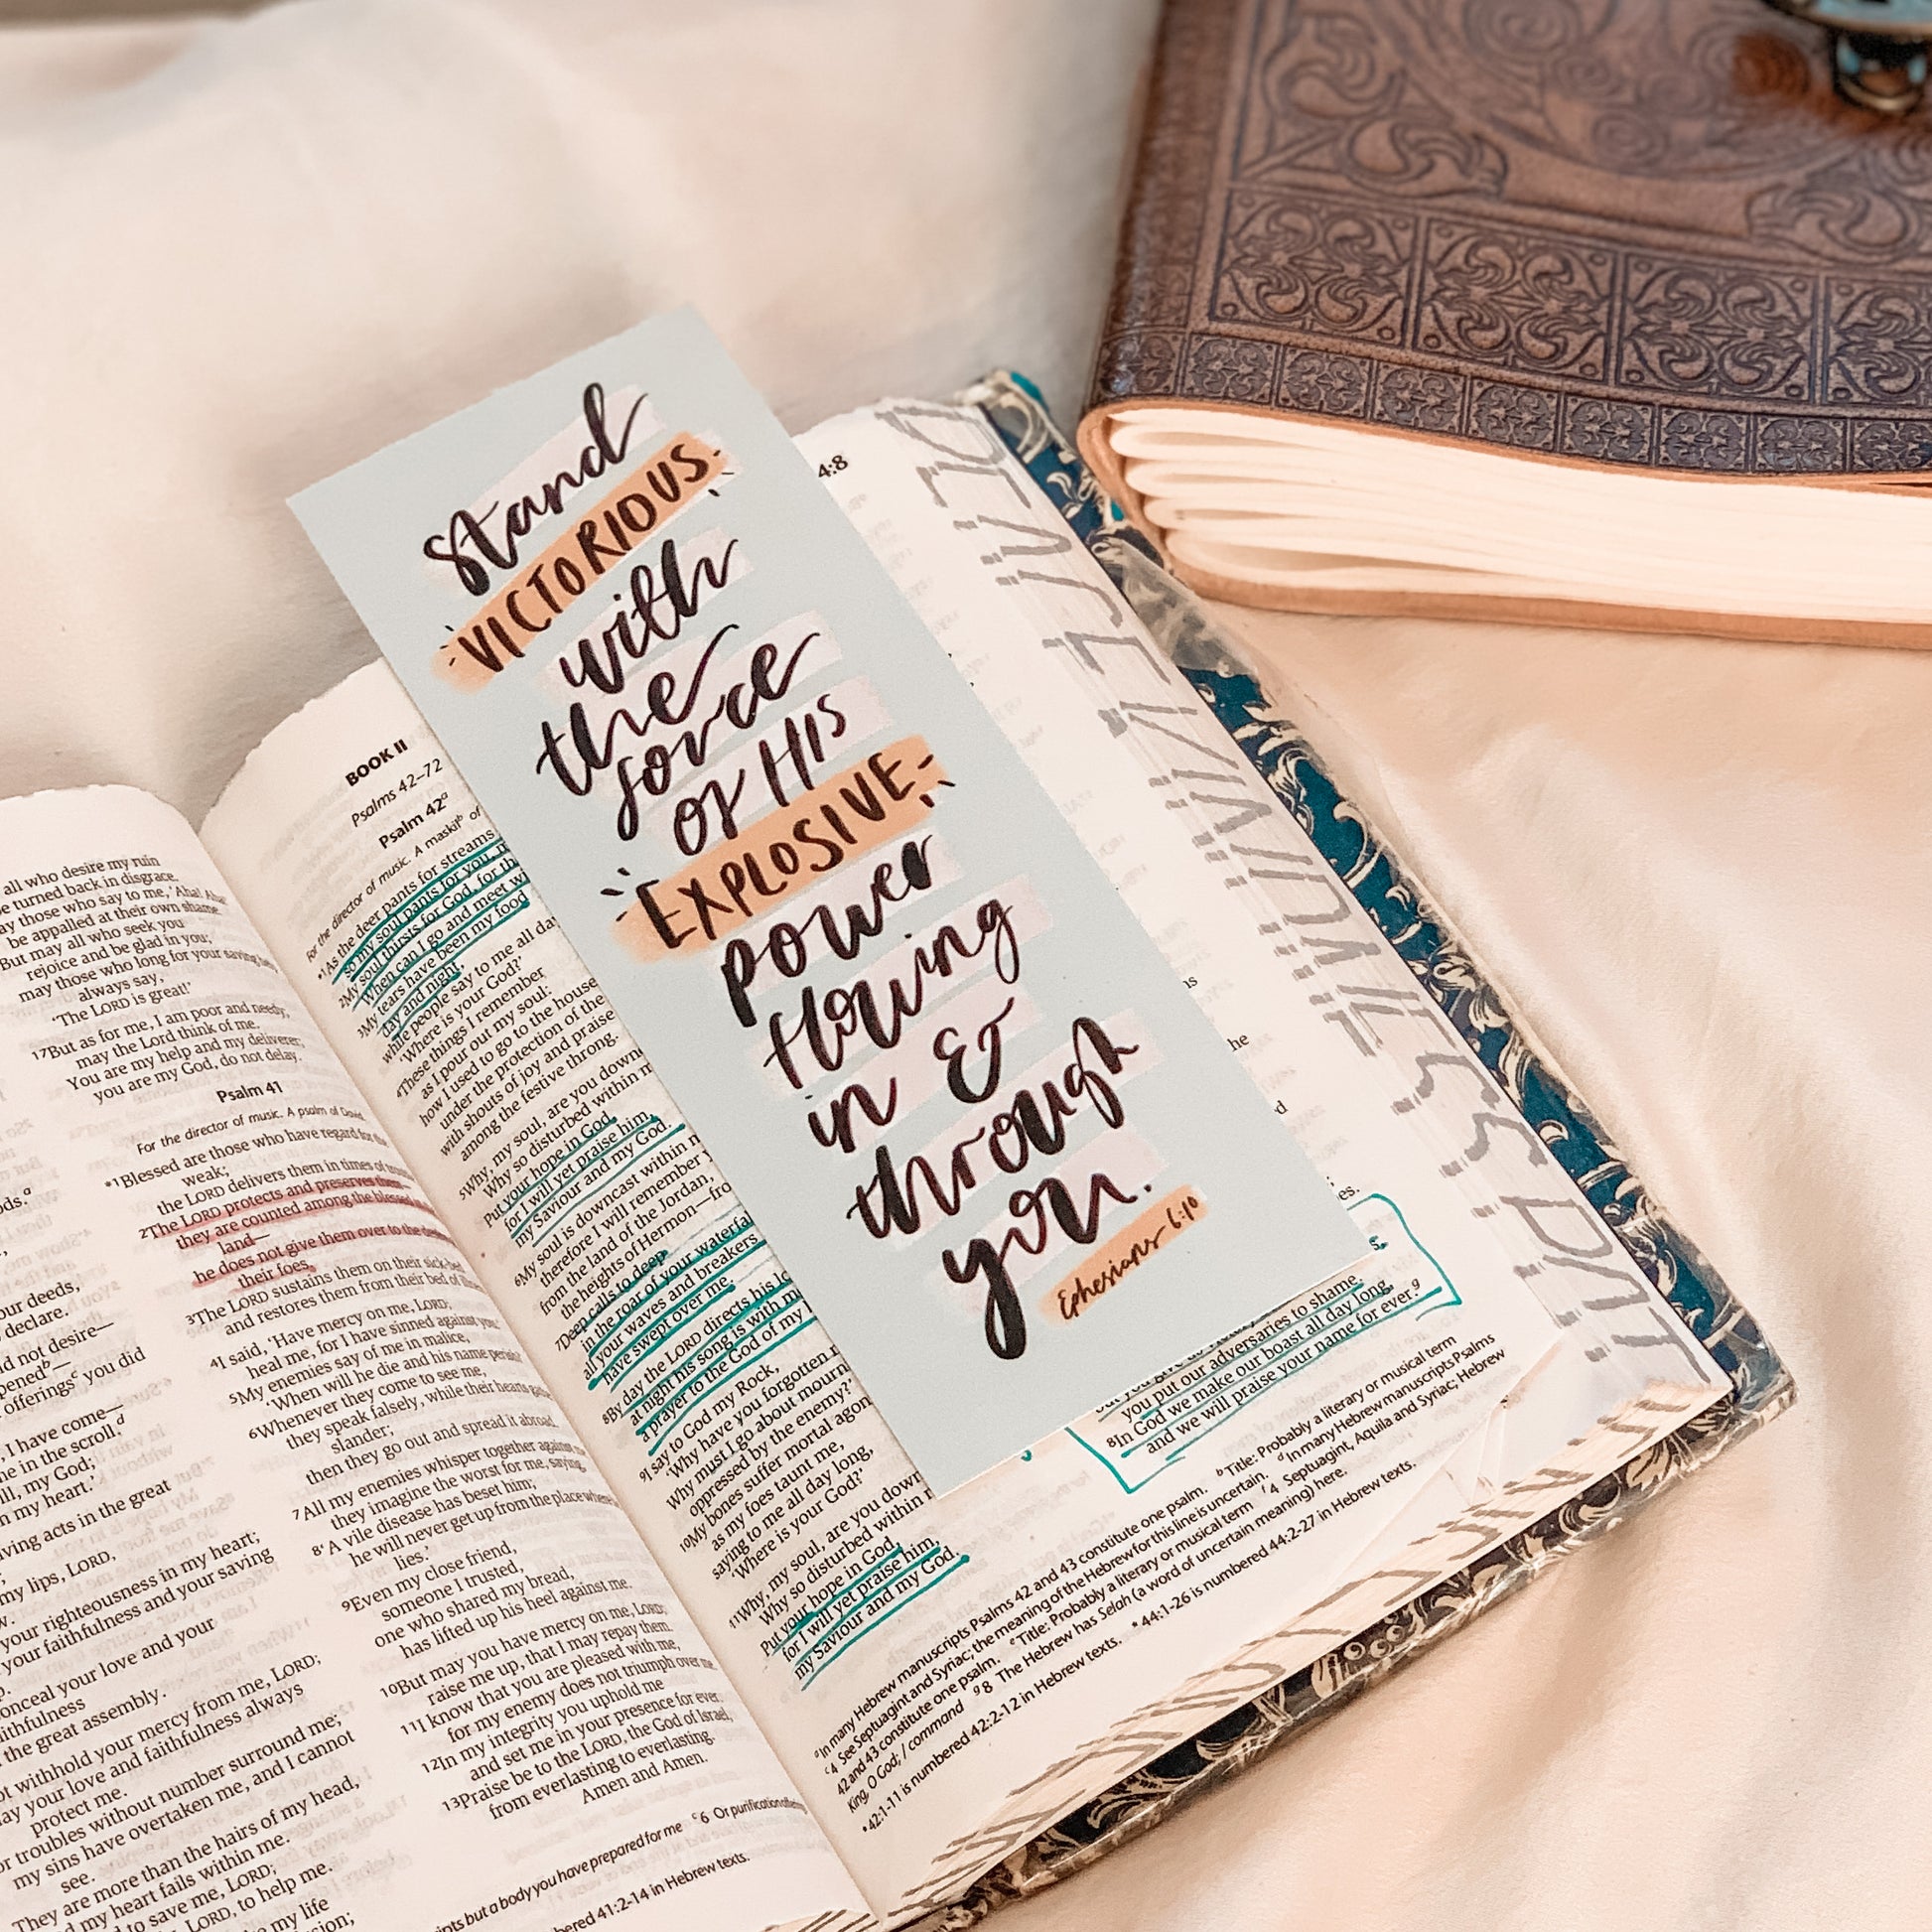 Stand
VICTORIOUS
with
the
force
of HIS
EXPLOSIVE
power
flowing
in &
through
you.
Ephesians 6:10
4:8
all who desire my ruin
turned back in disgrace.
those who say to me, 'Aha! Aha!'
be appalled at their own shame.
But may all who seek you
rejoice and be glad in you;
may those who long for your saving
always say,
'The LORD is great!'
17But as for me, I am poor and needy;
may the Lord think of me.
You are my help and my deliverer;
you are my God, do not delay.
Psalm 41
For the director of music. A psalm of David.
1Blessed are those who have regard for the
weak;
the LORD delivers them in times of
2The LORD protects and preserves them—
they are counted among the blessed
land—
he does not give them over to the
their foes.
3The LORD sustains them on their sick-bed
and restores them from their bed of
4I said, 'Have mercy on me, LORD;
heal me, for I have sinned against you.'
5My enemies say of me in malice,
'When will he die and his name perish?'
6Whenever they come to see me,
they speak falsely, while their hearts
slander;
then they go out and spread it abroad.
7All my enemies whisper together against me;
they imagine the worst for me, saying,
8'A vile disease has beset him;
he will never get up from the place where
lies.'
9Even my close friend,
someone I trusted,
one who shared my bread,
has lifted up his heel against me.
10But may you have mercy on me, LORD;
raise me up, that I may repay them.
11I know that you are pleased with me,
for my enemy does not triumph over me.
12In my integrity you uphold me
and set me in your presence for ever.
13Praise be to the LORD, the God of Israel,
from everlasting to everlasting.
Amen and Amen.
but a body you have prepared for me c6 Or purification
41:2-14 in Hebrew texts.
ods.a
our deeds,
declare.
not desire—
offerings c you did
I have come—
in the scroll.d
will, my God;
in my heart.'
acts in the great
my lips, LORD,
your righteousness in my heart;
your faithfulness and your saving
conceal your love and your
faithfulness
the great assembly.
withhold your mercy from me, LORD;
may your love and faithfulness always
protect me.
troubles without number surround me;
my sins have overtaken me, and I cannot
see.
They are more than the hairs of my head,
and my heart fails within me.
to save me, LORD;
LORD, to help me.
my life
BOOK II
Psalms 42–72
Psalm 42a
For the director of music. A maskil b of
1As the deer pants for streams
so my soul pants for you, m
2My soul thirsts for God, for th
When can I go and meet wi
3My tears have been my food
day and night,
while people say to me all day
'Where is your God?'
4These things I remember
as I pour out my soul:
how I used to go to the house
under the protection of the
with shouts of joy and praise
among the festive throng.
5Why, my soul, are you down
Why so disturbed within m
Put your hope in God,
for I will yet praise him,
my Saviour and my God.
6My soul is downcast within m
therefore I will remember y
from the land of the Jordan,
the heights of Hermon—fro
7Deep calls to deep
in the roar of your waterfa
all your waves and breakers
have swept over me.
8By day the LORD directs his lo
at night his song is with m
a prayer to the God of my l
9I say to God my Rock,
'Why have you forgotten m
Why must I go about mourn
oppressed by the enemy?'
10My bones suffer mortal agon
as my foes taunt me,
saying to me all day long,
'Where is your God?'
11Why, my soul, are you down
Why so disturbed within m
Put your hope in God,
for I will yet praise him,
my Saviour and my God.
you put our adversaries to shame.
8In God we make our boast all day long,
and we will praise your name for ever.g
aIn many Hebrew manuscripts Psalms 42 and 43 constitute one psalm. bTitle: Probably a literary or musical term
c4 See Septuagint and Syriac; the meaning of the Hebrew for this line is uncertain. dIn many Hebrew manuscripts Psalms
42 and 43 constitute one psalm. eTitle: Probably a literary or musical term f4 Septuagint, Aquila and Syriac; Hebrew
King, O God; / command g8 The Hebrew has Selah (a word of uncertain meaning) here.
*42:1-11 is numbered 42:2-12 in Hebrew texts. *44:1-26 is numbered 44:2-27 in Hebrew texts.